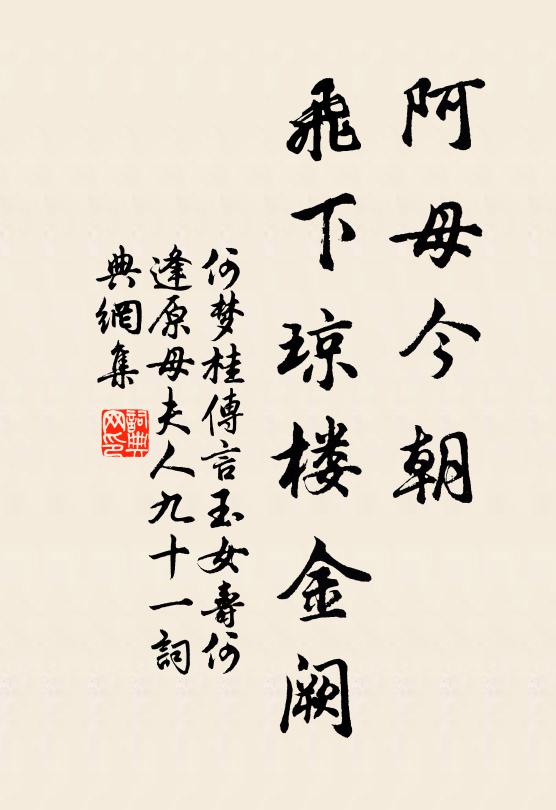 阿母今朝
飛下琼楼金阙
何梦桂傳言玉女壽何
逢原母夫人九十一詞
典網集
詞典网印